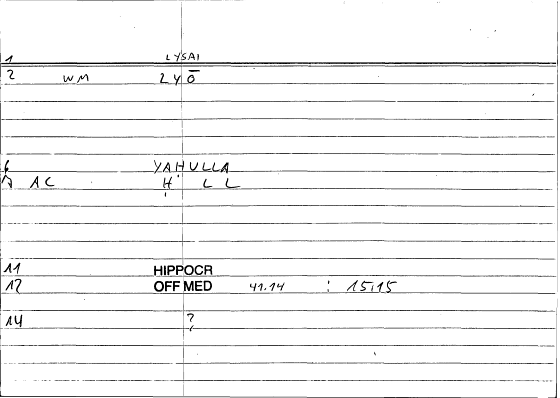 1 LYSAI
2 WM 2 4 0
6 YAHULLA
7 AC H L L
11 HIPPOCR
12 OFF MED 41.14 : 15,15
14 ?